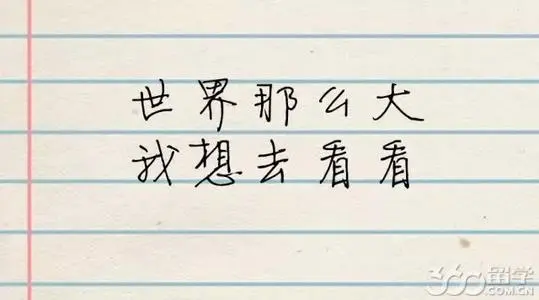 世界那么大
我想去看看
360留学
.COM.CN